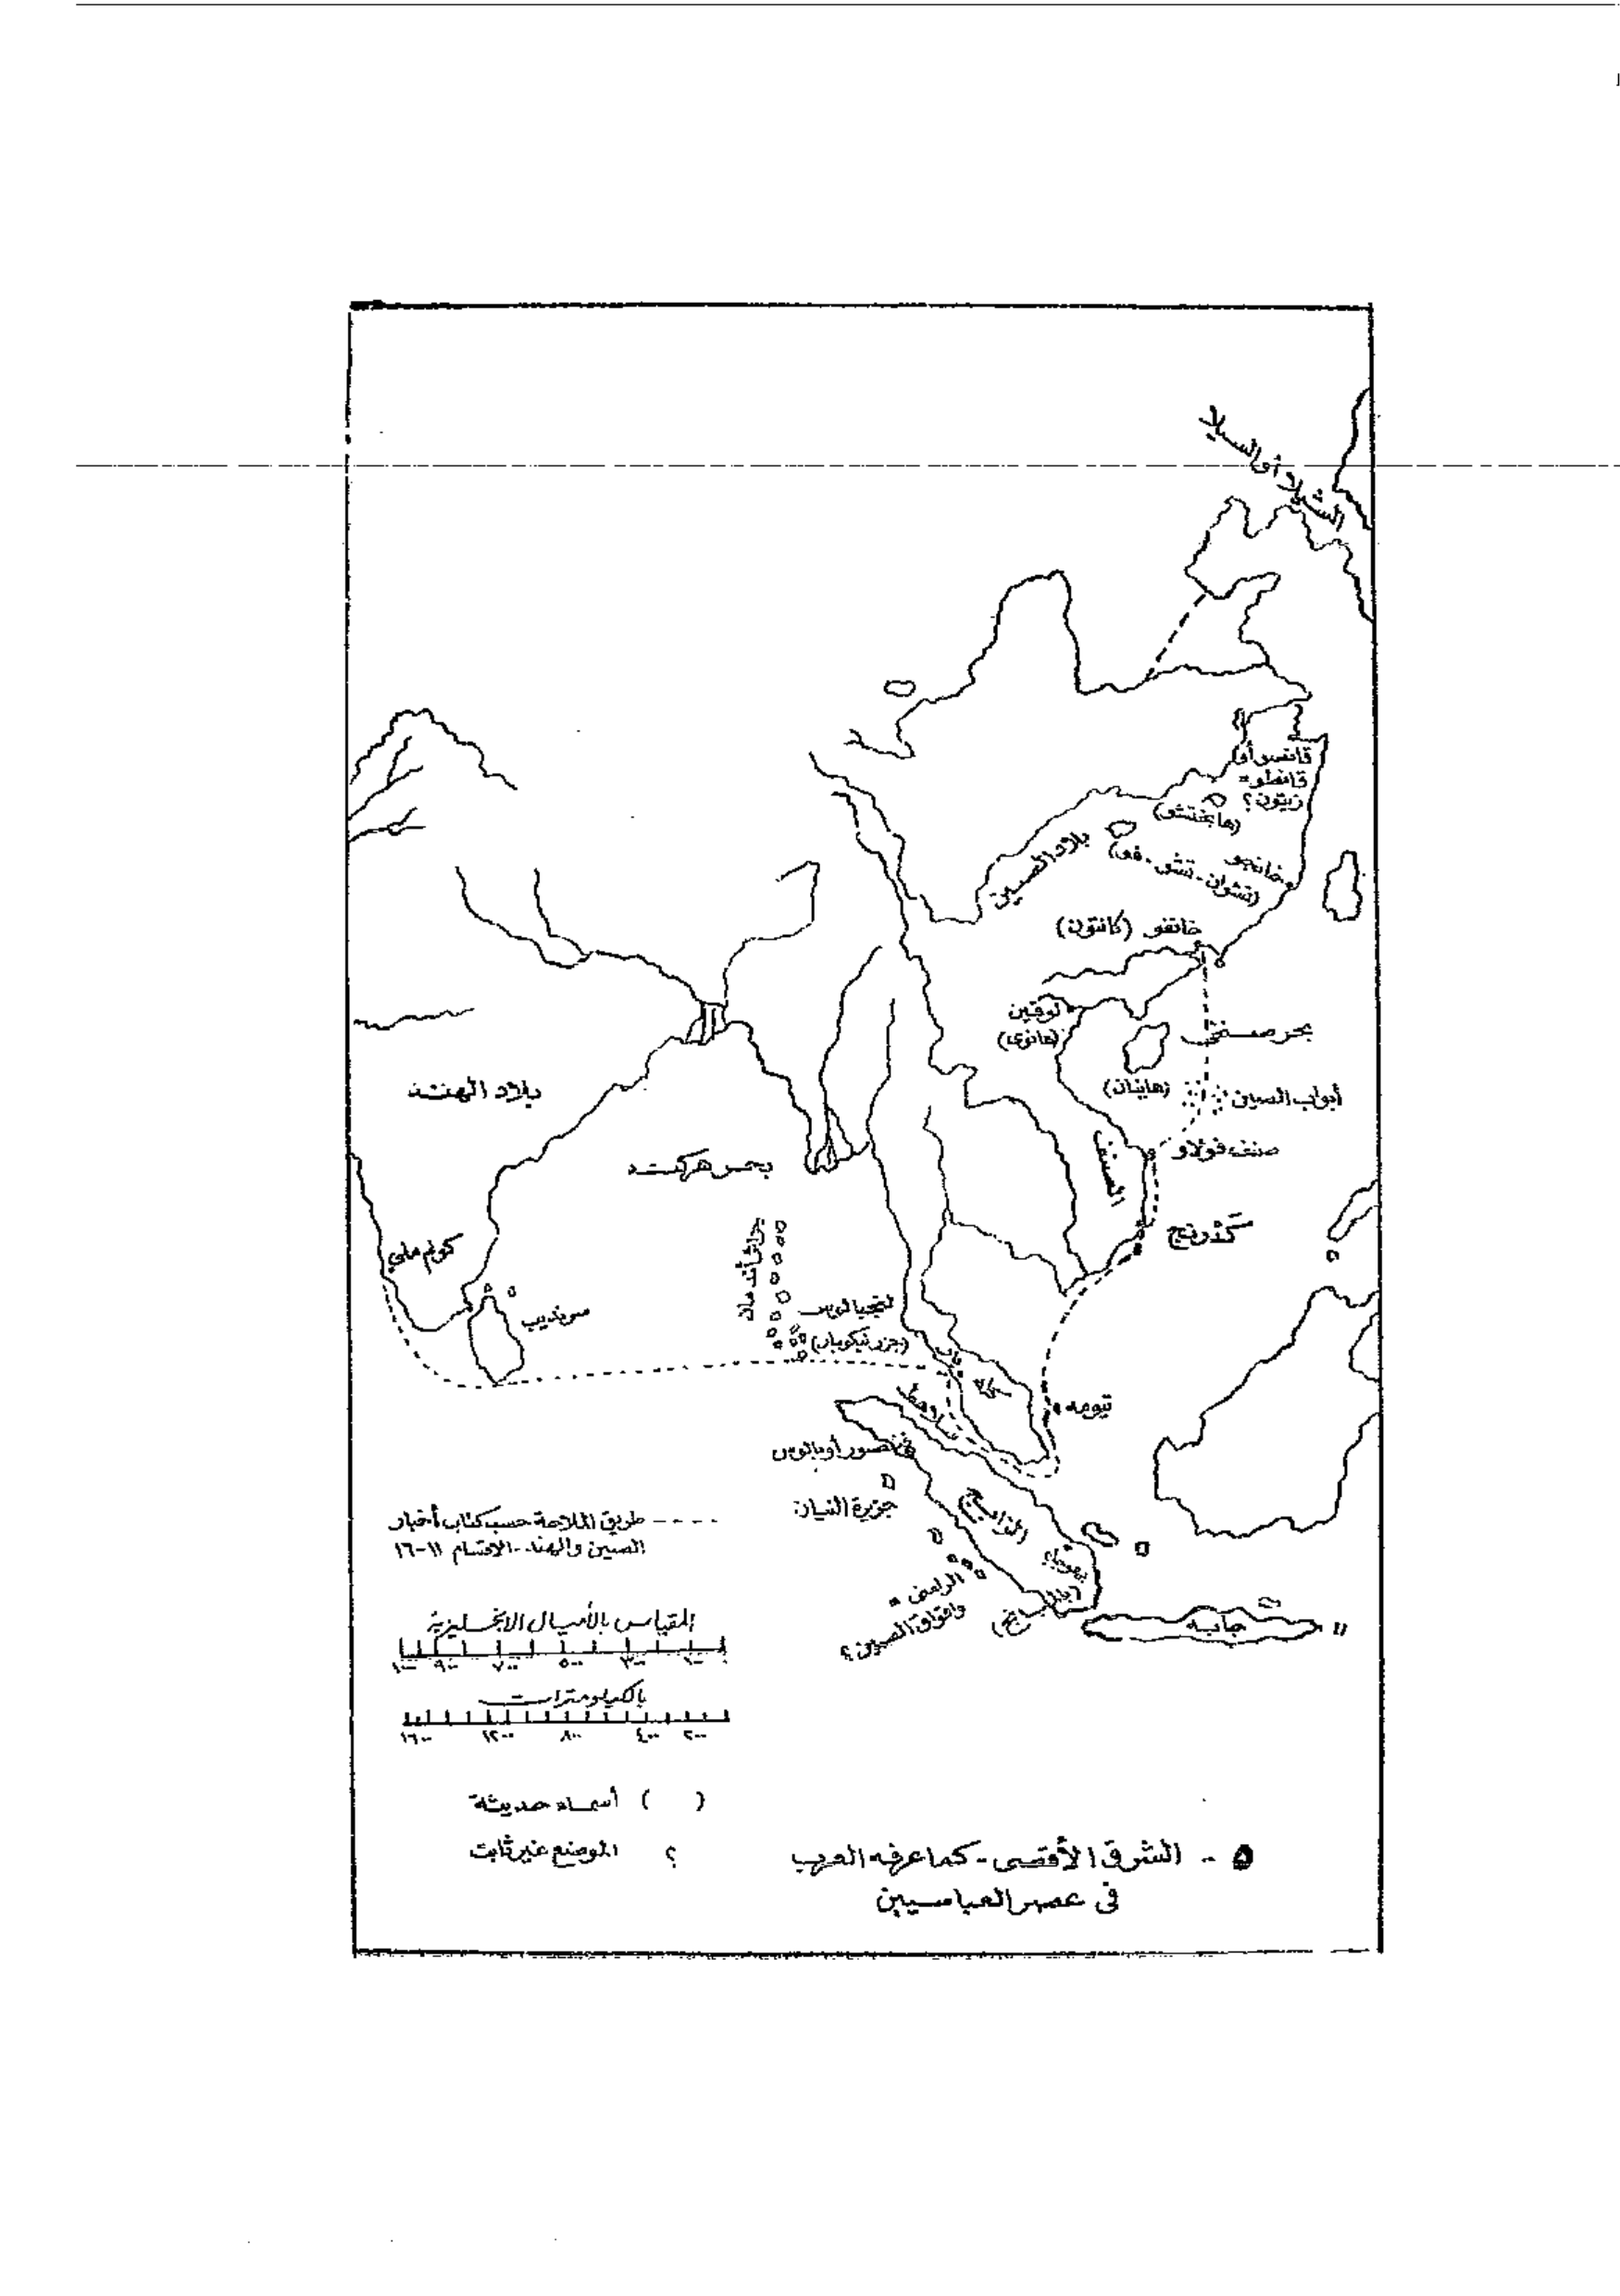 الشيلا أو السيلا
قانصو أو
قانطو =
زيتون ؟
(هانختشو)
بلاد الصين
خانجو
(تشوان - تشو - فو)
خانفو (كانتون)
لوقين
(هانوى)
بحر صنخى
(هاينان)
أبواب الصين
صنف فولاو
الصنف
كندرنج
بلاد الهند
بحر هركند
كولم ملي
سرنديب
جزائر أندمان
لنجبالوس
(جزر نيكوبار)
كله
تيومه
فنصور أو بالوس
جزيرة النيان
الزابج
الرامنى =
واقواق الصين ؟
جابه
---- طريق الملاحة حسب كتاب أخبار
الصين والهند - الاقسام ١١-١٦
المقياس بالأميال الانجليزية
١٠٠٠ ٩٠٠ ٧٠٠ ٥٠٠ ٣٠٠ ١٠٠
بالكيلومترات
١٦٠٠ ١٢٠٠ ٨٠٠ ٤٠٠ ٢٠٠
( ) أسماء حديثة
؟ الموضع غير ثابت
٥ - الشرق الأقصى - كما عرفه العرب
فى عصر العباسيين